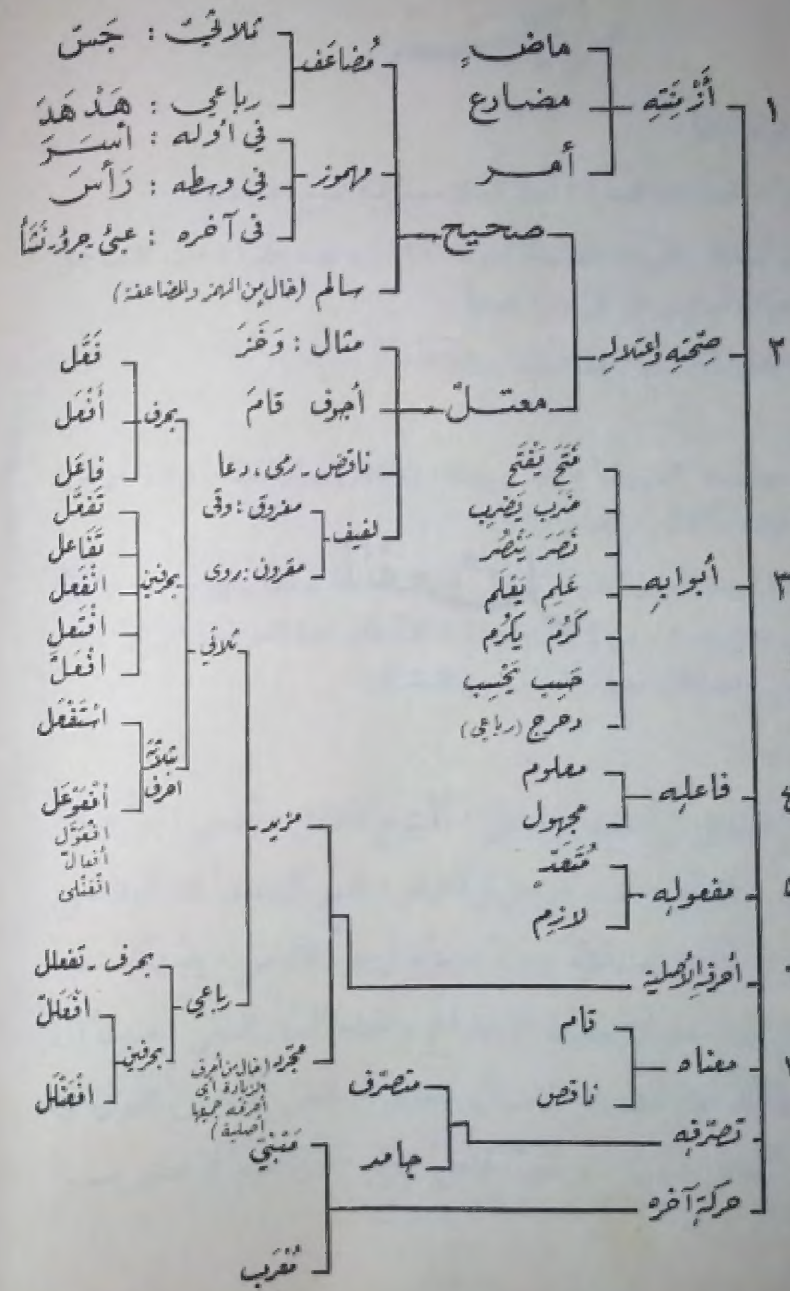 ١ أَزْمِنَتِهِ
ماضٍ
مضارع
أمر
٢ صِحَّتِهِ واعتلالِهِ
صحيح
مُضاعَف
ثلاثيّ : جَسَّ
رباعي : هَدْهَدَ
مهموز
في أوّله : أسَرَ
في وسطه : رَأَسَ
في آخره : عبئ. جرؤ. نَشَأَ
سالم (خالٍ من الهمز والمضاعفة)
معتلّ
مثال : وَخَزَ
أجوف قامَ
ناقص - رمى، دعا
لفيف
مفروق : وقى
مقرون : روى
٣ أبوابِهِ
فَتَحَ يَفْتَح
ضرَب يَضرِب
نَصَرَ يَنْصُر
عَلِم يَعْلَم
كَرُمَ يَكْرُم
حَسِب يَحْسِب
دحرج (رباعي)
فاعلِه
معلوم
مجهول
مفعولِه
مُتَعَدٍّ
لازم
أحرفِهِ الأصلية
مزيد
ثلاثي
بحرف
فَعَّل
أَفْعَل
فاعَل
بحرفين
تَفَعَّل
تَفَاعل
انْفَعل
افْتَعل
افْعَلَّ
ثلاثة أحرف
اسْتَفْعَل
افْعَوْعَل
افْعَوَّل
افعالّ
افْعَنْلى
رباعي
بحرف - تفعلل
بحرفين
افْعَلَلّ
افْعَنْلَل
مجرّد (خالٍ من أحرف
الزيادة أي
أحرفه جميعها
أصلية)
معناه
تام
ناقص
تصرّفِه
متصرّف
جامد
حركةِ آخره
مَبْنِيّ
مُعْرَب